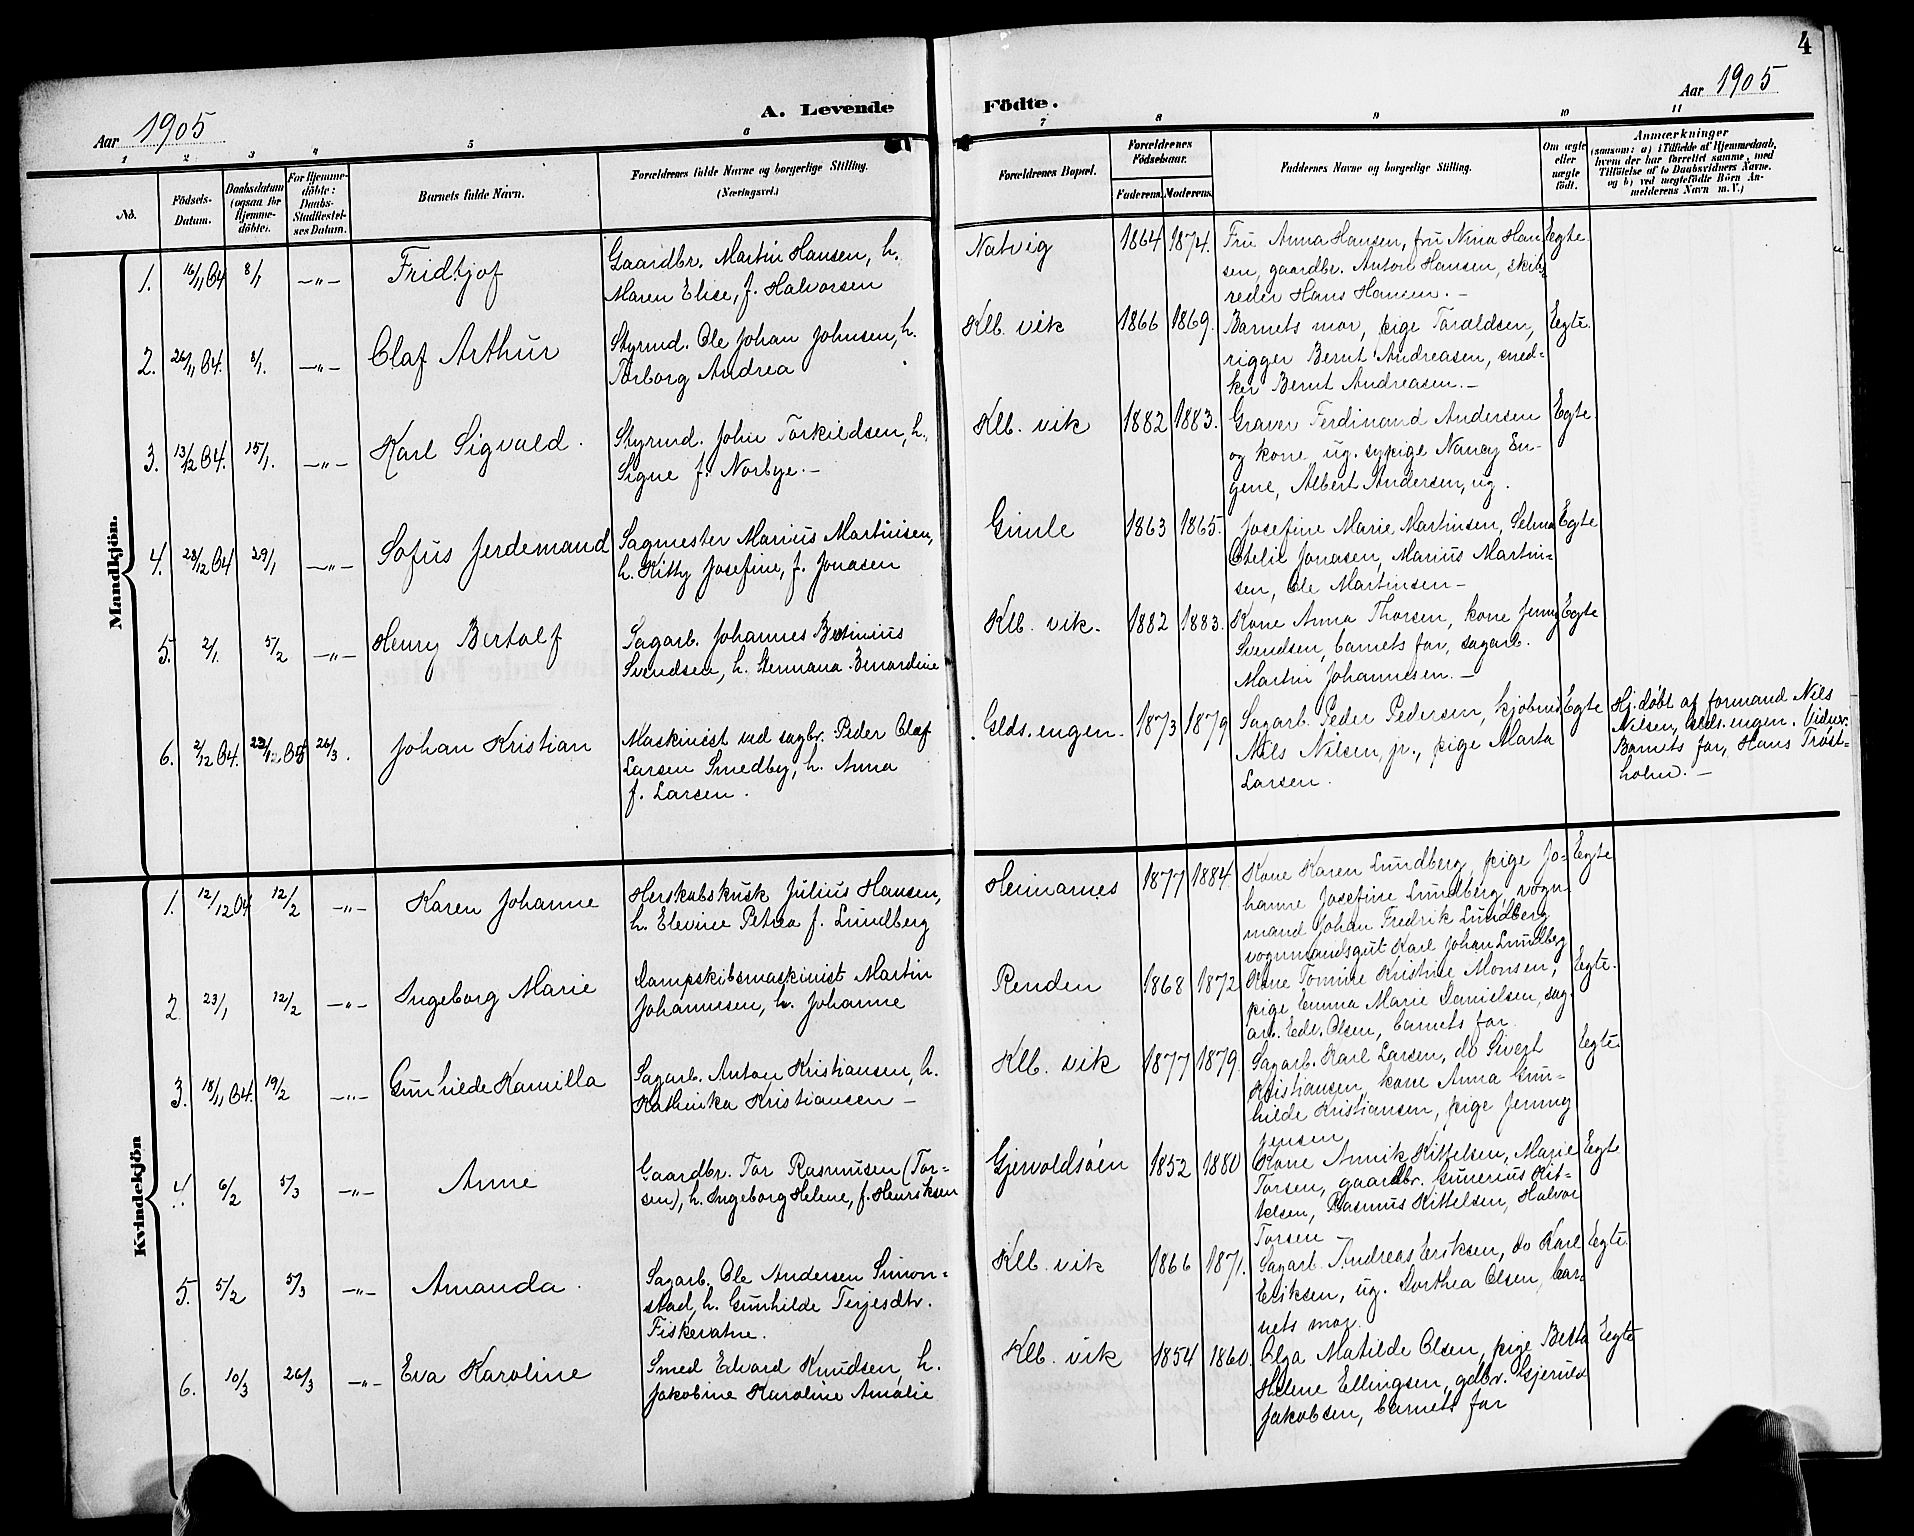 4
Aar 1905
A. Levende Födte.
Aar 1905
1 2 3 4 5 6 7 8 9 10 11
No.
Födsels-
Datum.
Daabsdatum
(ogsaa for
Hjemme-
döbte).
For Hjemme-
döbte:
Daabs-
Stadfæstel-
ses Datum.
Barnets fulde Navn.
Forældrenes fulde Navne og borgerlige Stilling.
(Næringsvei.)
Forældrenes Bopæl.
Forældrenes
Födselsaar.
Faderens. Moderens.
Faddernes Navne og borgerlige Stilling.
Om ægte
eller
uægte
födt.
Anmærkninger
(saasom: a) i Tilfælde af Hjemmedaab,
hvem der har forrettet samme, med
Tilföielse af to Daabsvidners Navne.
og b) ved uægtefödte Börn An-
melderens Navn m. V.)
Mandkjön.
1. 16/11 04 8/1 —"— Fridtjof
Gaardbr. Martin Hansen, h.
Maren Elise, f. Halvorsen
Natvig 1864 1874.
Fru Anna Hansen, fru Nina Han
sen, gaardbr. Anton Hansen, skibs-
reder Hans Hansen. —
Egte.
2. 26/11 04. 8/1. —"— Olaf Arthur
Styrmd. Ole Johan Johnsen, h.
Torborg Andrea
Klb. vik 1866 1869.
Barnets mor, pige Taraldsen,
rigger Bernt Andreasen, sned-
ker Bernt Andreasen. —
Egte.
3. 13/12 04. 15/1. —"— Karl Sigvald.
Styrmd. John Torkildsen, h.
Signe f. Norbye. —
Klb. vik 1882 1883.
Graver Ferdinand Andersen
og kone ug. sypige Nancy En-
gene, Albert Andersen, ug.
Egte.
4. 28/12 04 29/1 —"— Sofus Jerdemand
Sagmester Marius Martinisen,
h. Kitty Josefine, f. Jonasen
Gimle 1863 1865.
Josefine Marie Martinsen, Selma
Otelie Jonasen, Marius Martin-
sen, Ole Martinsen —
Egte
5. 2/1. 5/2 —"— Henry Bertolf
Sagarb. Johannes
Svendsen, h. Hermana Bernardine
Klb. vik. 1882 1883.
Kone Anna Thorsen, kone Jenny
Svendsen, barnets far, sagarb.
Martin Johannesen. —
Egte
6. 2/12 04. 05 26/3. Johan Kristian
Maskinist ved sagbr. Peder Olaf
Larsen Smedby, h. Anna
f. Larsen.
Glds. engen. 1873 1879
Sagarb. Peder Pedersen, kjøbmd
Nils Nilsen, jr., pige Marta
Larsen.
Egte
Hj. døbt af formand Nils
Nilsen, Glds. engen. Vidner:
Barnets far, Hans Trøst-
holm. —
Kvindekjön
1. 12/12 04 12/2 —"— Karen Johanne
Herskabskusk Julius Hansen,
h. Elevine Petrea f. Lundberg
Heimarnes 1877 1884.
Kone Karen Lundberg, pige Jo-
hanne Josefine Lundberg, vogn-
mand Johan Fredrik Lundberg
vognmandsgut Karl Johan Lundberg
Egte
2 23/1 12/2 —"— Ingeborg Marie
Dampskibsmaskinist Martin
Johannesen, h. Johanne
Renden 1868 1872
Kone Tomine Kristine Monsen,
pige Emma Marie Danielsen, sag-
arb. Edv. Olsen, barnets far.
Egte.
3. 18/11 04. 19/2 —"— Gunhilde Kamilla
Sagarb. Anton Kristiansen, h.
Kathinka Kristiansen —
Klb. vik 1877 1879.
Sagarb. Karl Larsen, do Sivert
Kristiansen, kone Anna Gun-
hilde Kristiansen, pige Jenny
Jensen
Egte
4. 6/2 5/3 —"— Anne
Gaardbr. Tor Rasmusen (Tor-
sen), h. Ingeborg Helene, f. Henriksen
Gjervoldsøen 1852 1880
Kone Annik Kittelsen, Marie
Torsen, gaardbr. Gunerius Kit-
telsen, Rasmus Kittelsen, Halvor
Torsen —
Egte
5. 5/2 5/3 —"— Amanda.
Sagarb. Ole Andersen Simon-
stad, h. Gunhilde Terjesdtr.
Fiskevatne.
Klb. vik 1866 1871.
Sagarb. Andreas Eriksen, do Karl
Eriksen, ug. Dorthea Olsen, bar-
nets mor.
Egte.
6. 10/3 26/3 —"— Eva Karoline
Smed Edvard Knudsen, h.
Jakobine Karoline Amalie
Klb. vik 1854 1860.
Olga Matilde Olsen, pige Berta
Helene Ellingsen, gdbr. Gjerulv
Jakobsen, barnets far
Egte